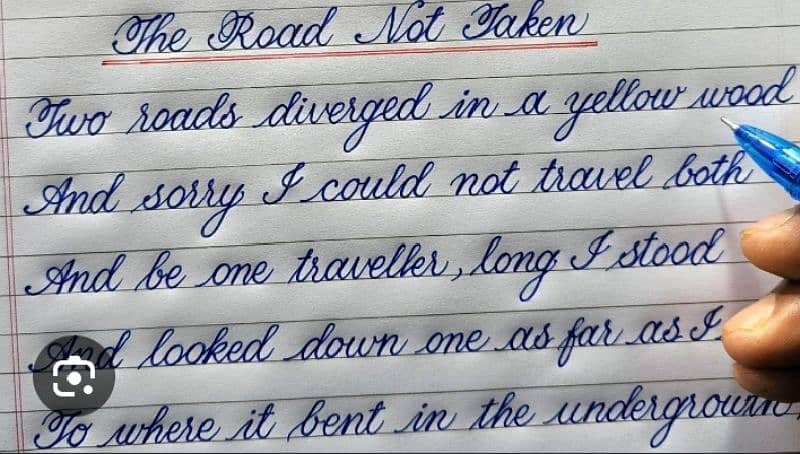 The Road Not Taken
Two roads diverged in a yellow wood
And sorry I could not travel both
And be one traveller, long I stood
And looked down one as far as I
To where it bent in the